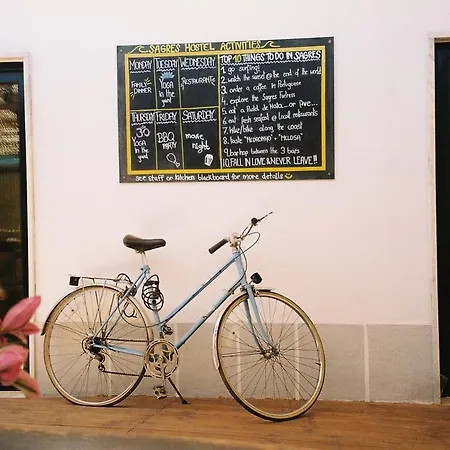 SAGRES HOSTEL ACTIVITIES
MONDAY
FAMILY DINNER
TUESDAY
YOGA
in the yard
WEDNESDAY
RESTAURANTE
THURSDAY
YOGA
in the yard
FRIDAY
BBQ
PARTY
SATURDAY
movie
night
TOP 10 THINGS TO DO IN SAGRES
1. go surfing!
2. watch the sunset @ the end of the world
3. order a coffee in Portuguese
4. explore the Sagres Fortress
5. eat a Pastel de Nata... or FIVE...
6. eat fresh seafood @ local restaurants
7. Hike/bike along the coast
8. taste "MEDRONHO" + "MELOSA"
9. bar hop between the 3 bars
10. FALL IN LOVE & NEVER LEAVE!!!
see staff or kitchen blackboard for more details